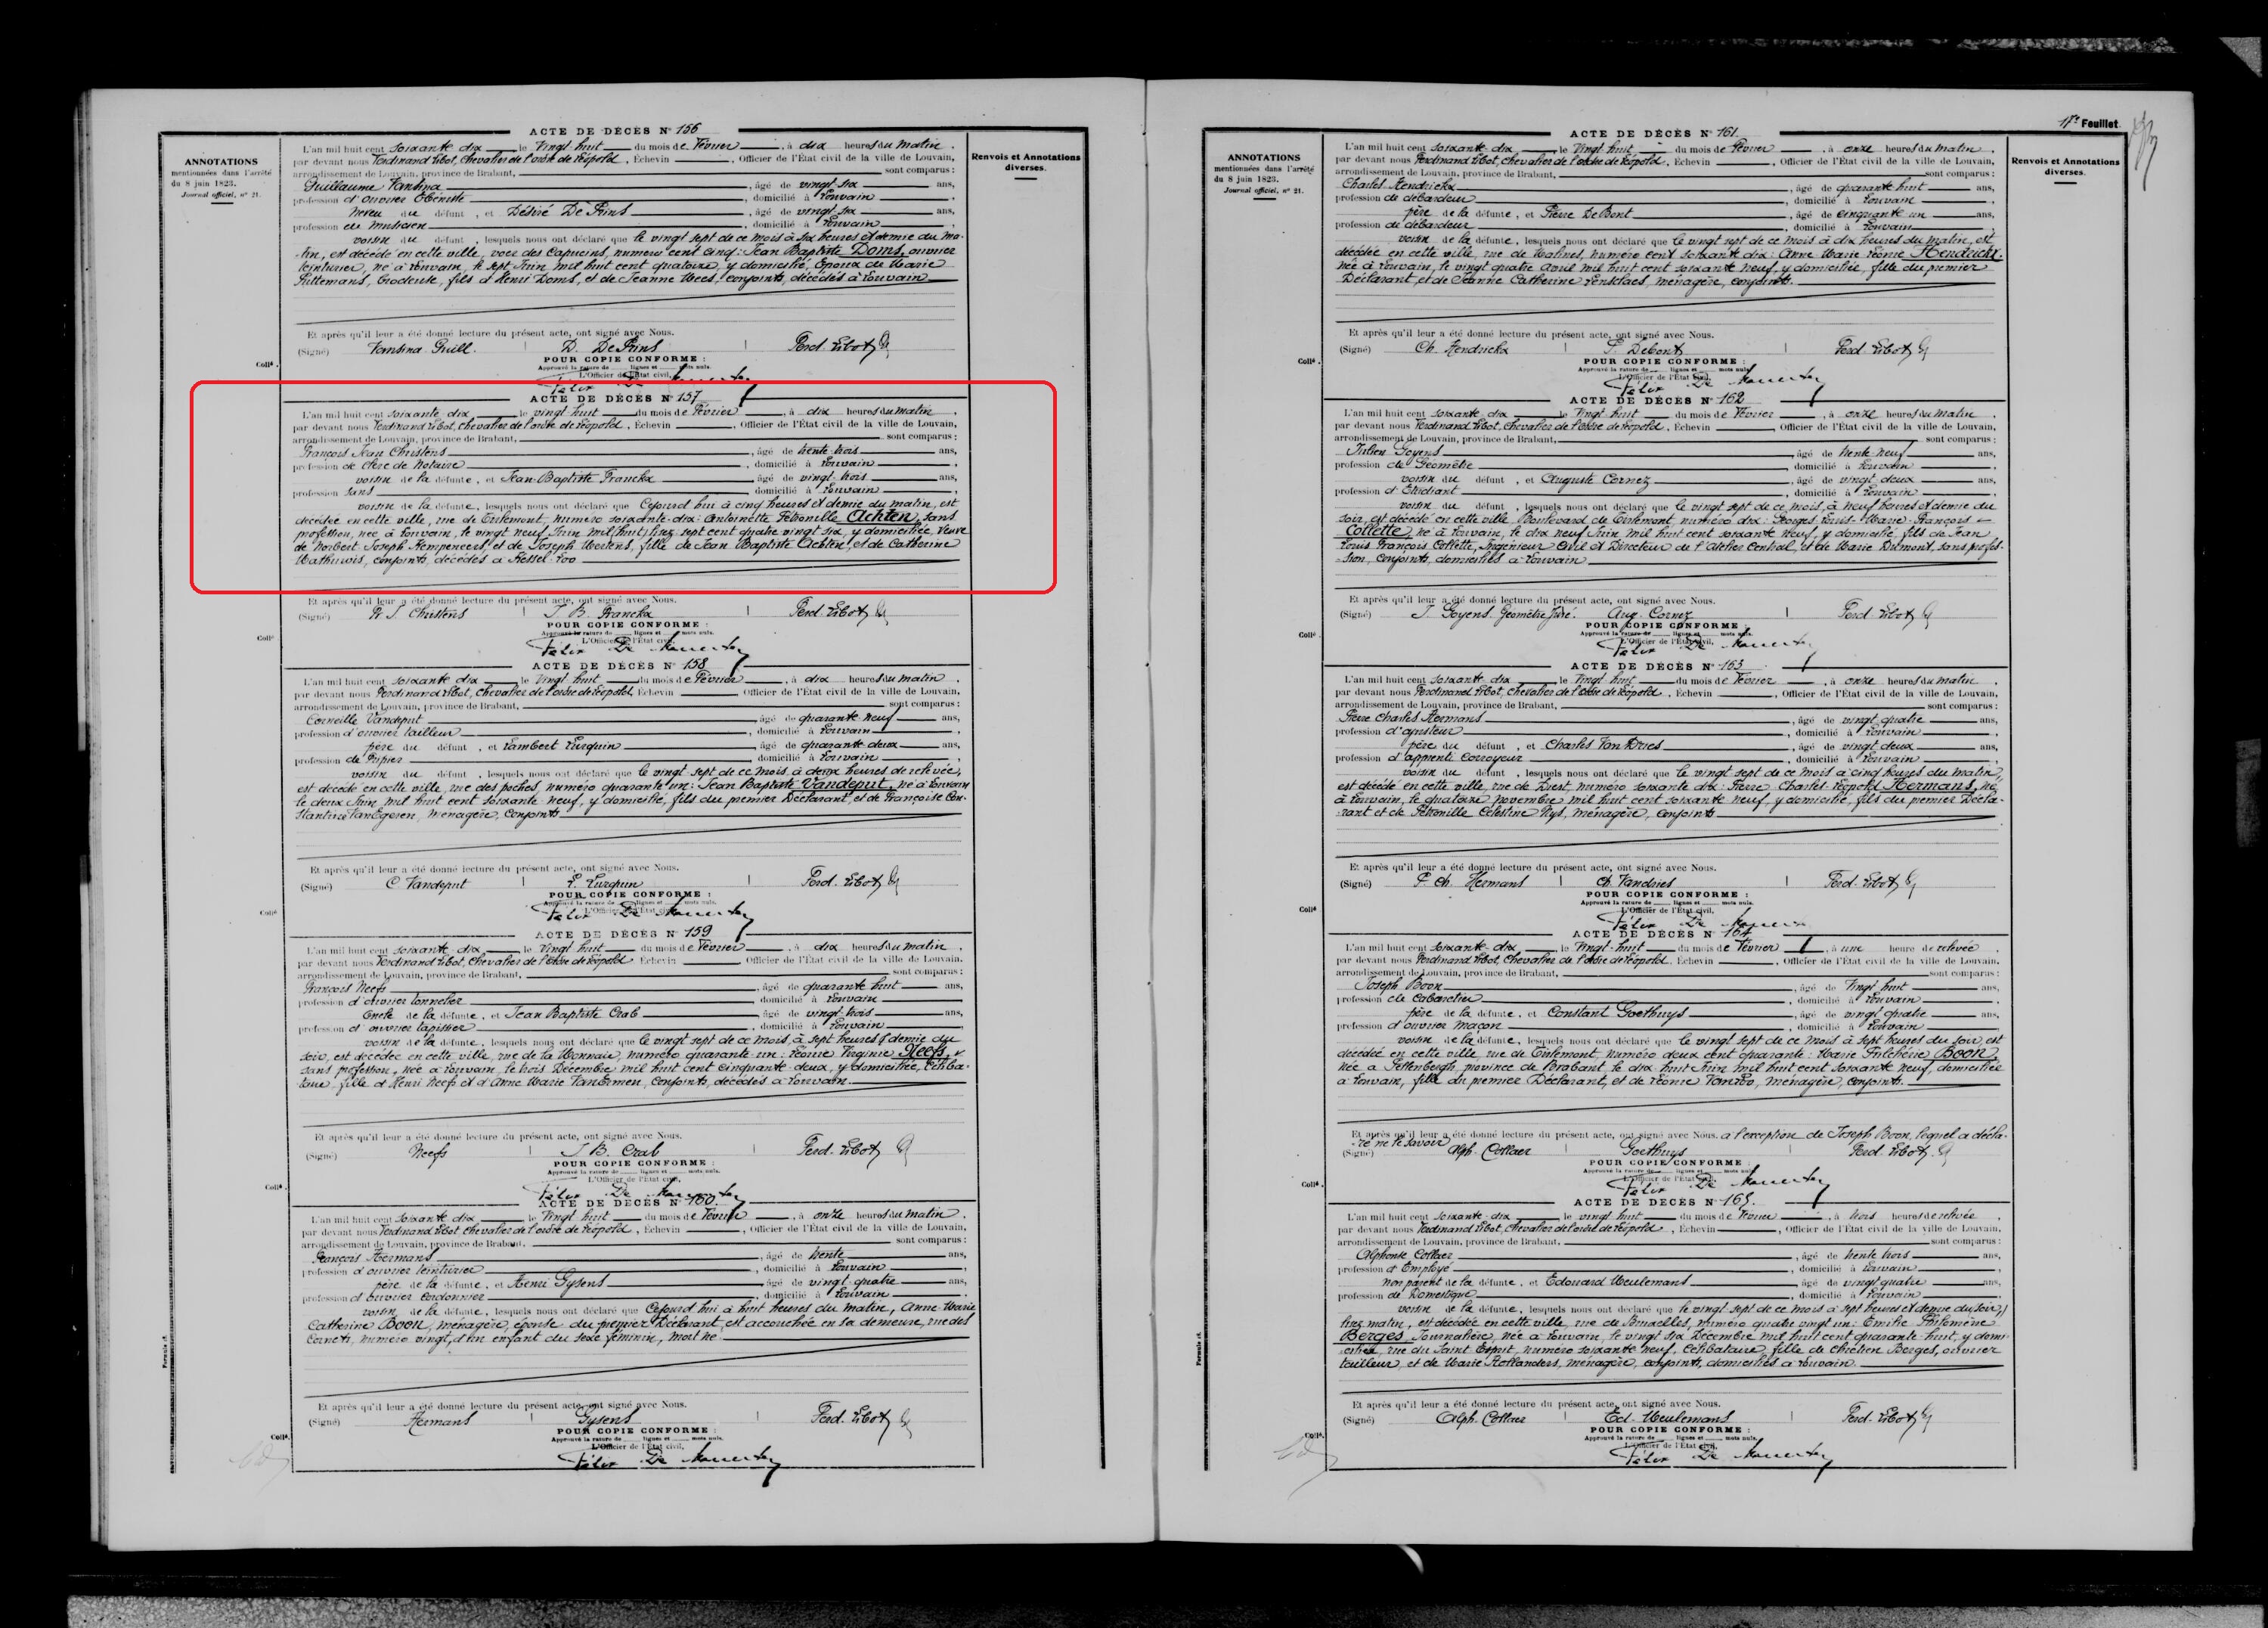 ACTE DE DÉCÈS N° 156
ANNOTATIONS
mentionnées dans l'arrêté
du 8 juin 1823.
Journal officiel, n° 21.
Renvois et Annotations
diverses.
L'an mil huit cent soixante dix le Vingt huit du mois de Février, à dix heures du matin,
par devant nous Ferdinand Libot, Chevalier de l'ordre de Léopold, Échevin, Officier de l'État civil de la ville de Louvain,
arrondissement de Louvain, province de Brabant, sont comparus :
Guillaume Vansina, âgé de vingt-six ans,
profession d'ouvrier Ebéniste, domicilié à Louvain,
neveu du défunt, et Désiré De Prins, âgé de vingt six ans,
profession de Musicien, domicilié à Louvain,
voisin du défunt, lesquels nous ont déclaré que le vingt sept de ce mois à six heures et demie du ma-
tin, est décédé en cette ville, voer des Capucins, numéro cent cinq: Jean Baptiste Doms, ouvrier
teinturier, né à Louvain, le sept Juin mil huit cent quatorze, y domicilié, Epoux de Marie
Puttemans, brodeuse, fils d'Henri Doms, et de Jeanne Mees, conjoints, décédés à Louvain
Et après qu'il leur a été donné lecture du présent acte, ont signé avec Nous.
(Signé) Vansina Guill. D. De Prins Ferd. Libot
POUR COPIE CONFORME :
Approuvé la rature de lignes et mots nuls.
L'Officier de l'État civil,
Coll.
ACTE DE DÉCÈS N° 157
L'an mil huit cent soixante dix le vingt huit du mois de Février, à dix heures du matin,
par devant nous Ferdinand Libot, Chevalier de l'ordre de Léopold, Échevin, Officier de l'État civil de la ville de Louvain,
arrondissement de Louvain, province de Brabant, sont comparus :
François Jean Christens, âgé de trente trois ans,
profession de clerc de Notaire, domicilié à Louvain,
voisin de la défunte, et Jean-Baptiste Franckx, âgé de vingt-trois ans,
profession sans domicilié à Louvain,
voisin de la défunte, lesquels nous ont déclaré que Cejourd'hui à cinq heures et demie du matin, est
décédée en cette ville, rue de Tirlemont, numéro soixante-dix: Antoinette Pétronille Achten, sans
profession, née à Louvain, le vingt neuf Juin mil (huit) lisez sept cent quatre vingt six, y domiciliée, Veuve
de Norbert Joseph Kempeneers, et de Joseph Mertens, fille de Jean Baptiste Achten, et de Catherine
conjoints, décédés à Kessel-Loo
Et après qu'il leur a été donné lecture du présent acte, ont signé avec Nous.
(Signé) J. Christens J. B. Franckx Ferd. Libot
POUR COPIE CONFORME :
Approuvé la rature de lignes et mots nuls.
L'Officier de l'État civil,
Coll.
ACTE DE DÉCÈS N° 158
L'an mil huit cent soixante dix le Vingt huit du mois de Février, à dix heures du matin,
par devant nous Ferdinand Libot, Chevalier de l'ordre de Léopold, Échevin, Officier de l'État civil de la ville de Louvain,
arrondissement de Louvain, province de Brabant, sont comparus :
Corneille Vandeput, âgé de quarante-neuf ans,
profession d'ouvrier tailleur, domicilié à Louvain,
père du défunt, et Lambert Lurquin, âgé de quarante-deux ans,
profession de Fripier, domicilié à Louvain,
voisin du défunt, lesquels nous ont déclaré que le vingt sept de ce mois à deux heures de relevée,
est décédé en cette ville, rue des poches, numéro quarante un: Jean Baptiste Vandeput, né à Louvain
le deux Juin mil huit cent soixante neuf, y domicilié, fils du premier Déclarant, et de Françoise Con-
stantine VanEgeren, ménagère, conjoints
Et après qu'il leur a été donné lecture du présent acte, ont signé avec Nous.
(Signé) C Vandeput L. Lurquin Ferd. Libot
POUR COPIE CONFORME :
Approuvé la rature de lignes et mots nuls.
L'Officier de l'État civil,
Coll.
ACTE DE DÉCÈS N° 159
L'an mil huit cent soixante, dix le Vingt huit du mois de Février, à dix heures du matin,
par devant nous Ferdinand Libot, Chevalier de l'Ordre de Léopold, Échevin, Officier de l'État civil de la ville de Louvain,
arrondissement de Louvain, province de Brabant, sont comparus :
François Neefs, âgé de quarante huit ans,
profession d'ouvrier tonnelier, domicilié à Louvain,
Oncle de la défunte, et Jean Baptiste Crab, âgé de vingt-trois ans,
profession d'ouvrier tapissier, domicilié à Louvain,
voisin de la défunte, lesquels nous ont déclaré que le vingt sept de ce mois, à sept heures & demie du
soir, est décédée en cette ville, rue de la Monnaie, numéro quarante un: Léonie Virginie Neefs,
sans profession, née à Louvain, le trois Décembre mil huit cent cinquante-deux, y domiciliée, Céliba-
taire, fille d'Henri Neefs et d'Anne Marie VanErmen, conjoints, décédés à Louvain.
Et après qu'il leur a été donné lecture du présent acte, ont signé avec Nous.
(Signé) Neefs J. B. Crab Ferd. Libot
POUR COPIE CONFORME :
Approuvé la rature de lignes et mots nuls.
L'Officier de l'État civil,
Coll.
ACTE DE DÉCÈS N° 160
L'an mil huit cent soixante dix le Vingt huit du mois de Février, à onze heures du matin,
par devant nous Ferdinand Libot Chevalier de l'ordre de Léopold, Échevin, Officier de l'État civil de la ville de Louvain,
arrondissement de Louvain, province de Brabant, sont comparus :
François Hermans, âgé de trente ans,
profession d'ouvrier teinturier, domicilié à Louvain,
père de la défunte, et Henri Gysens, âgé de vingt-quatre ans,
profession d'ouvrier cordonnier, domicilié à Louvain,
voisin de la défunte, lesquels nous ont déclaré que Cejourd'hui à huit heures du matin, Anne-Marie
Catherine Boon, ménagère, épouse du premier Déclarant, est accouchée en sa demeure, rue des
Cornets, numéro vingt, d'un enfant du sexe féminin, mort-né
Et après qu'il leur a été donné lecture du présent acte, ont signé avec Nous.
(Signé) Hermans Gysens Ferd. Libot
POUR COPIE CONFORME :
Approuvé la rature de lignes et mots nuls.
L'Officier de l'État civil,
Coll.
Feuillet
ACTE DE DÉCÈS N° 161
ANNOTATIONS
mentionnées dans l'arrêté
du 8 juin 1823.
Journal officiel, n° 21.
Renvois et Annotations
diverses.
L'an mil huit cent soixante-dix le Vingt huit du mois de Février, à onze heures du matin,
par devant nous Ferdinand Libot, Chevalier de l'ordre de Léopold, Échevin, Officier de l'État civil de la ville de Louvain,
arrondissement de Louvain, province de Brabant, sont comparus :
Charles Hendrickx, âgé de quarante huit ans,
profession de débardeur, domicilié à Louvain,
père de la défunte, et Pierre DeBont, âgé de cinquante un ans,
profession de débardeur, domicilié à Louvain,
voisin de la défunte, lesquels nous ont déclaré que le vingt sept de ce mois à dix heures du matin, est
décédée en cette ville, rue de Malines, numéro cent soixante dix: Anne Marie Léonie Hendrickx
née à Louvain, le vingt quatre Avril mil huit cent soixante neuf, y domiciliée, fille du premier
Déclarant, et de Jeanne Catherine Censelaes, ménagère, conjoints.
Et après qu'il leur a été donné lecture du présent acte, ont signé avec Nous.
(Signé) Ch. Hendrickx P. Debont Ferd. Libot
POUR COPIE CONFORME :
Approuvé la rature de lignes et mots nuls.
L'Officier de l'État civil,
Coll.
ACTE DE DÉCÈS N° 162
L'an mil huit cent soixante dix le Vingt huit du mois de Février, à onze heures du matin,
par devant nous Ferdinand Libot, Chevalier de l'Ordre de Léopold, Échevin, Officier de l'État civil de la ville de Louvain,
arrondissement de Louvain, province de Brabant, sont comparus :
Julien Goyens, âgé de trente-neuf ans,
profession de Géomètre, domicilié à Louvain,
voisin du défunt, et Auguste Cornez, âgé de vingt deux ans,
profession d'Etudiant, domicilié à Louvain,
voisin du défunt, lesquels nous ont déclaré que le vingt sept de ce mois, à neuf heures et demie du
soir, est décédé en cette ville Boulevard de Tirlemont, numéro dix: Georges-Louis-Marie-François
Collette, né à Louvain, le dix neuf Juin mil huit cent soixante neuf, y domicilié, fils de Jean
Louis François Collette, Ingénieur Civil et Directeur de l'Atelier Central, et de Marie Dumont, sans profes-
sion, conjoints, domiciliés à Louvain
Et après qu'il leur a été donné lecture du présent acte, ont signé avec Nous.
(Signé) J. Goyens. Géomètre Juré. Aug. Cornez Ferd. Libot
POUR COPIE CONFORME :
Approuvé la rature de lignes et mots nuls.
L'Officier de l'État civil,
Coll.
ACTE DE DÉCÈS N° 163
L'an mil huit cent soixante dix le Vingt huit du mois de Février, à onze heures du matin,
par devant nous Ferdinand Libot, Chevalier de l'Ordre de Léopold, Échevin, Officier de l'État civil de la ville de Louvain,
arrondissement de Louvain, province de Brabant, sont comparus :
Pierre Charles Hermans, âgé de vingt quatre ans,
profession d'ajusteur, domicilié à Louvain,
père du défunt, et Charles Van Dries, âgé de vingt deux ans,
profession d'apprenti Corroyeur, domicilié à Louvain,
voisin du défunt, lesquels nous ont déclaré que le vingt sept de ce mois à cinq heures du matin,
est décédé en cette ville, rue de Diest, numéro soixante dix: Pierre Charles-Léopold Hermans, né
à Louvain, le quatorze novembre mil huit cent soixante neuf, y domicilié, fils du premier Décla-
rant et de Pétronille Célestine Nys, ménagère, conjoints
Et après qu'il leur a été donné lecture du présent acte, ont signé avec Nous.
(Signé) P. Ch. Hermans Ch. Vandries Ferd. Libot
POUR COPIE CONFORME :
Approuvé la rature de lignes et mots nuls.
L'Officier de l'État civil,
Coll.
ACTE DE DÉCÈS N° 164
L'an mil huit cent soixante-dix le Vingt-huit du mois de Février, à une heure de relevée,
par devant nous Ferdinand Libot, Chevalier de l'ordre de Léopold, Échevin, Officier de l'État civil de la ville de Louvain,
arrondissement de Louvain, province de Brabant, sont comparus :
Joseph Boon, âgé de Vingt huit ans,
profession de Cabaretier, domicilié à Louvain,
père de la défunte, et Constant Goethuys, âgé de vingt quatre ans,
profession d'ouvrier maçon, domicilié à Louvain,
voisin de la défunte, lesquels nous ont déclaré que le vingt sept de ce mois à sept heures du soir, est
décédée en cette ville, rue de Tirlemont, numéro deux cent quarante: Marie Pulchérie Boon,
née à Pellenbergh, province de Brabant, le dix huit Juin mil huit cent soixante neuf, domiciliée
à Louvain, fille du premier Déclarant, et de Léonie VanRoo, ménagère, conjoints.
Et après qu'il leur a été donné lecture du présent acte, ont signé avec Nous. à l'exception de Joseph Boon, lequel a décla-
-ré ne le savoir
(Signé) Alph. Collaer Goethuys Ferd. Libot
POUR COPIE CONFORME :
Approuvé la rature de lignes et mots nuls.
L'Officier de l'État civil,
Coll.
ACTE DE DÉCÈS N° 165
L'an mil huit cent soixante-dix le vingt huit du mois de Février, à trois heures de relevée,
par devant nous Ferdinand Libot, Chevalier de l'ordre de Léopold, Échevin, Officier de l'État civil de la ville de Louvain,
arrondissement de Louvain, province de Brabant, sont comparus :
Alphonse Collaer, âgé de trente trois ans,
profession d'Employé, domicilié à Louvain,
non parent de la défunte, et Edouard Meulemans, âgé de vingt quatre ans,
profession de Domestique, domicilié à Louvain,
voisin de la défunte, lesquels nous ont déclaré que le vingt sept de ce mois à sept heures et demie du (soir,)
lisez matin, est décédée en cette ville, rue de Bruxelles, numéro quatre vingt un: Emilie Philomène
Berges, Journalière, née à Louvain, le vingt six Décembre mil huit cent quarante-huit, y domi-
ciliée, rue du Saint Esprit, numéro soixante neuf, Célibataire, fille de Chrétien Berges, ouvrier
tailleur, et de Marie Hollanders, ménagère, conjoints, domiciliés à Louvain.
Et après qu'il leur a été donné lecture du présent acte, ont signé avec Nous.
(Signé) Alph. Collaer Ed. Meulemans Ferd. Libot
POUR COPIE CONFORME :
Approuvé la rature de lignes et mots nuls.
L'Officier de l'État civil,
Coll.